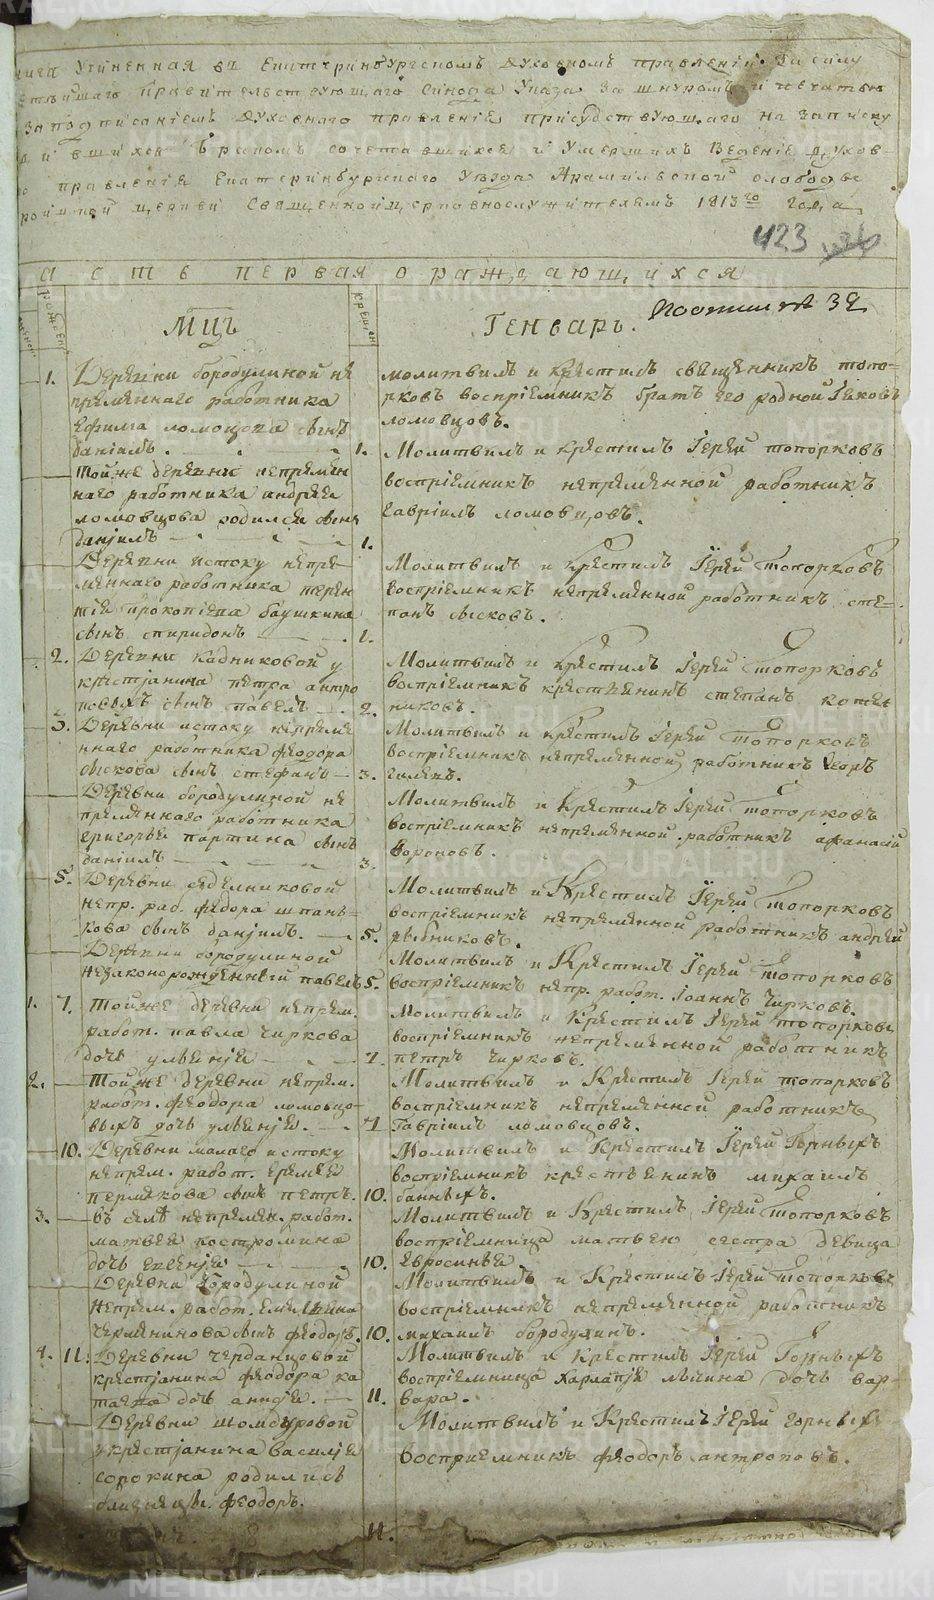 книга Учиненная въ Екатеринбургскомъ Духовномъ правленїи За силу
Правительствующаго Синода Указа За шнуромъ и печатью
За подписанїемъ Духовнаго правленїя присудствующаго на записку
бракомъ сочетавшихся и Умершихъ Веденїе Духов-
правленїя Екатеринбургскаго Уѣзда Арамильской слободы
церкви Священно и церковнослужителямъ 1813го года
423
часть первая о раждающихся
Мцъ
Генварь.
1. Деревни бородулиной не
премѣннаго работника
Ефима ломовцова сынъ
данїилъ.
1.
молитвилъ и крестилъ священникъ топо-
рковъ воспрїемникъ братъ его родной Іяковъ
ломовцовъ.
тойже деревни непремѣн
наго работника андрея
ломовцова родился сынъ
данїилъ
1.
Молитвилъ и крестилъ Іерей топорковъ
воспрїемникъ непремѣнной работникъ
гаврїилъ ломовцовъ.
Деревни истоку непре-
мѣннаго работника терен
тїя прокопїева баушкина
сынъ спиридонъ
1.
Молитвилъ и крестилъ Їерей Топорковъ
воспрїемникъ непремѣнной работникъ сте-
панъ лысковъ.
2. Деревни кадниковой у
крестьянина петра антро
повыхъ сынъ павелъ
2.
Молитвилъ и крестилъ Їерей Топорковъ
воспрїемникъ крестьянинъ степанъ
никовъ.
3. Деревни истоку непремѣ
ннаго работника феодора
лыскова сынъ стефанъ
3.
Молитвилъ и крестилъ Їерей Топорковъ
воспрїемникъ непремѣнной работникъ Егоръ
Деревни бородулиной не
премѣннаго работника
григорья партина сынъ
данїилъ
3.
Молитвилъ и Крестилъ Їерей топорковъ
воспрїемникъ непремѣнной работникъ афанасїй
вороновъ.
5. Деревни седелниковой
непр. раб. федора шпань-
кова сынъ данїилъ.
5.
Молитвилъ и Крестилъ Їерей Топорковъ
воспрїемникъ непремѣнной работникъ андрей
Деревни бородулиной
незаконорожденный павелъ
5.
Молитвилъ и Крестилъ Їерей Топорковъ
воспрїемникъ непр. работ. Іоаннъ Чирковъ.
1. 7. тойже деревни непрем.
работ. павла чиркова
дочь улїянїя
7.
Молитвилъ и Крестилъ Їерей топорковъ
воспрїемникъ непремѣнной работникъ
петръ чирковъ.
2. тойже деревни непрем.
работ. феодора ломовцо-
выхъ дочь улїянїя.
7
Молитвилъ и Крестилъ Їерей топорковъ
воспрїемникъ непремѣнной работникъ
Гаврїилъ ломовцовъ.
10. Деревни малаго истоку
непрем. работ. еремѣя
пермякова сынъ петръ.
10.
Молитвилъ и Крестилъ Їерей Горныхъ
воспрїемникъ крестьянинъ михаилъ
банныхъ.
3. въ селѣ непремѣн. работ.
матвея костромина
дочь евгенїя
10.
Молитвилъ и Крестилъ Їерей топорковъ
воспрїемница матвею сестра девица
Евросинья
Деревни бородулиной
непрем. работ. емельяна
сынъ феодоръ.
10.
Молитвилъ и Крестилъ Їерей топорковъ
воспрїемникъ непремѣнной работникъ
михаилъ бородулинъ.
4. 11. Деревни черданцовой
крестьянина феодора ка
таева дочь аннїя.
11.
Молитвилъ и Крестилъ Їерей Горныхъ
воспрїемница Харлампїя дочь вар-
вара.
Деревни шомбуровой
у крестьянина василїя
сорокина родились
близнецы. феодоръ.
11.
Молитвилъ и Крестилъ Їерей горныхъ
восприемникъ феодоръ антроповъ.
METRIKI.GASO-URAL.RU